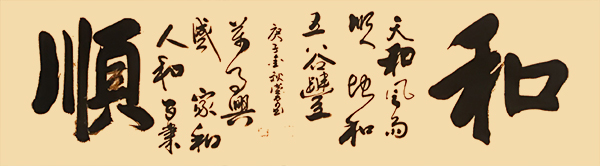 和順
天和風雨
順地和
五谷豐
人和百業
盛家和
萬事興
庚子金秋